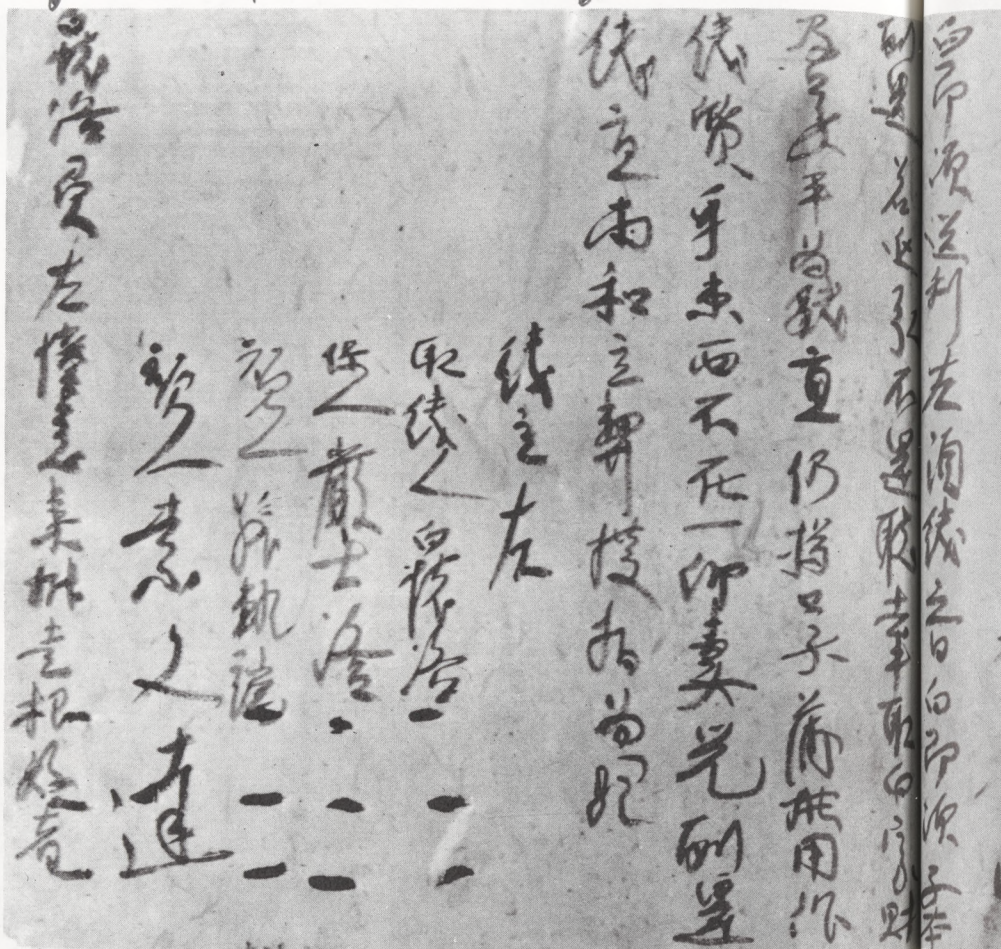 白即須送利左須錢之日白即須子本
酬還若延引不還聽牽取白家財
及口分平為錢直仍將口分蒲桃用作
錢質身東西不在一仰妻兒酬還
錢直兩和立契獲指為驗
錢主左
取錢人白懷洛
保人嚴士洛
知見人張軌端
知見人索文達
白懷洛負左憧憙棗樹壹根好者